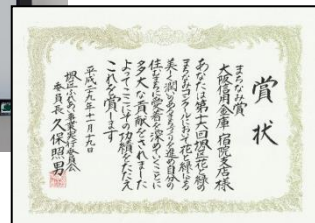 賞状
まちなみ賞
大阪信用金庫 宿院支店様
あなたは第十六回堺花と緑の
まちなみコンクールにおいて花と緑による
美しく潤いのあるまちづくりを進め自分の
住むまちに愛着を深めていくことに
多大な貢献をされました
よってここにその功績をたたえ
これを賞します
平成二十九年十一月十九日
堺 ふれあい事業実行委員会
委員長 久保照男